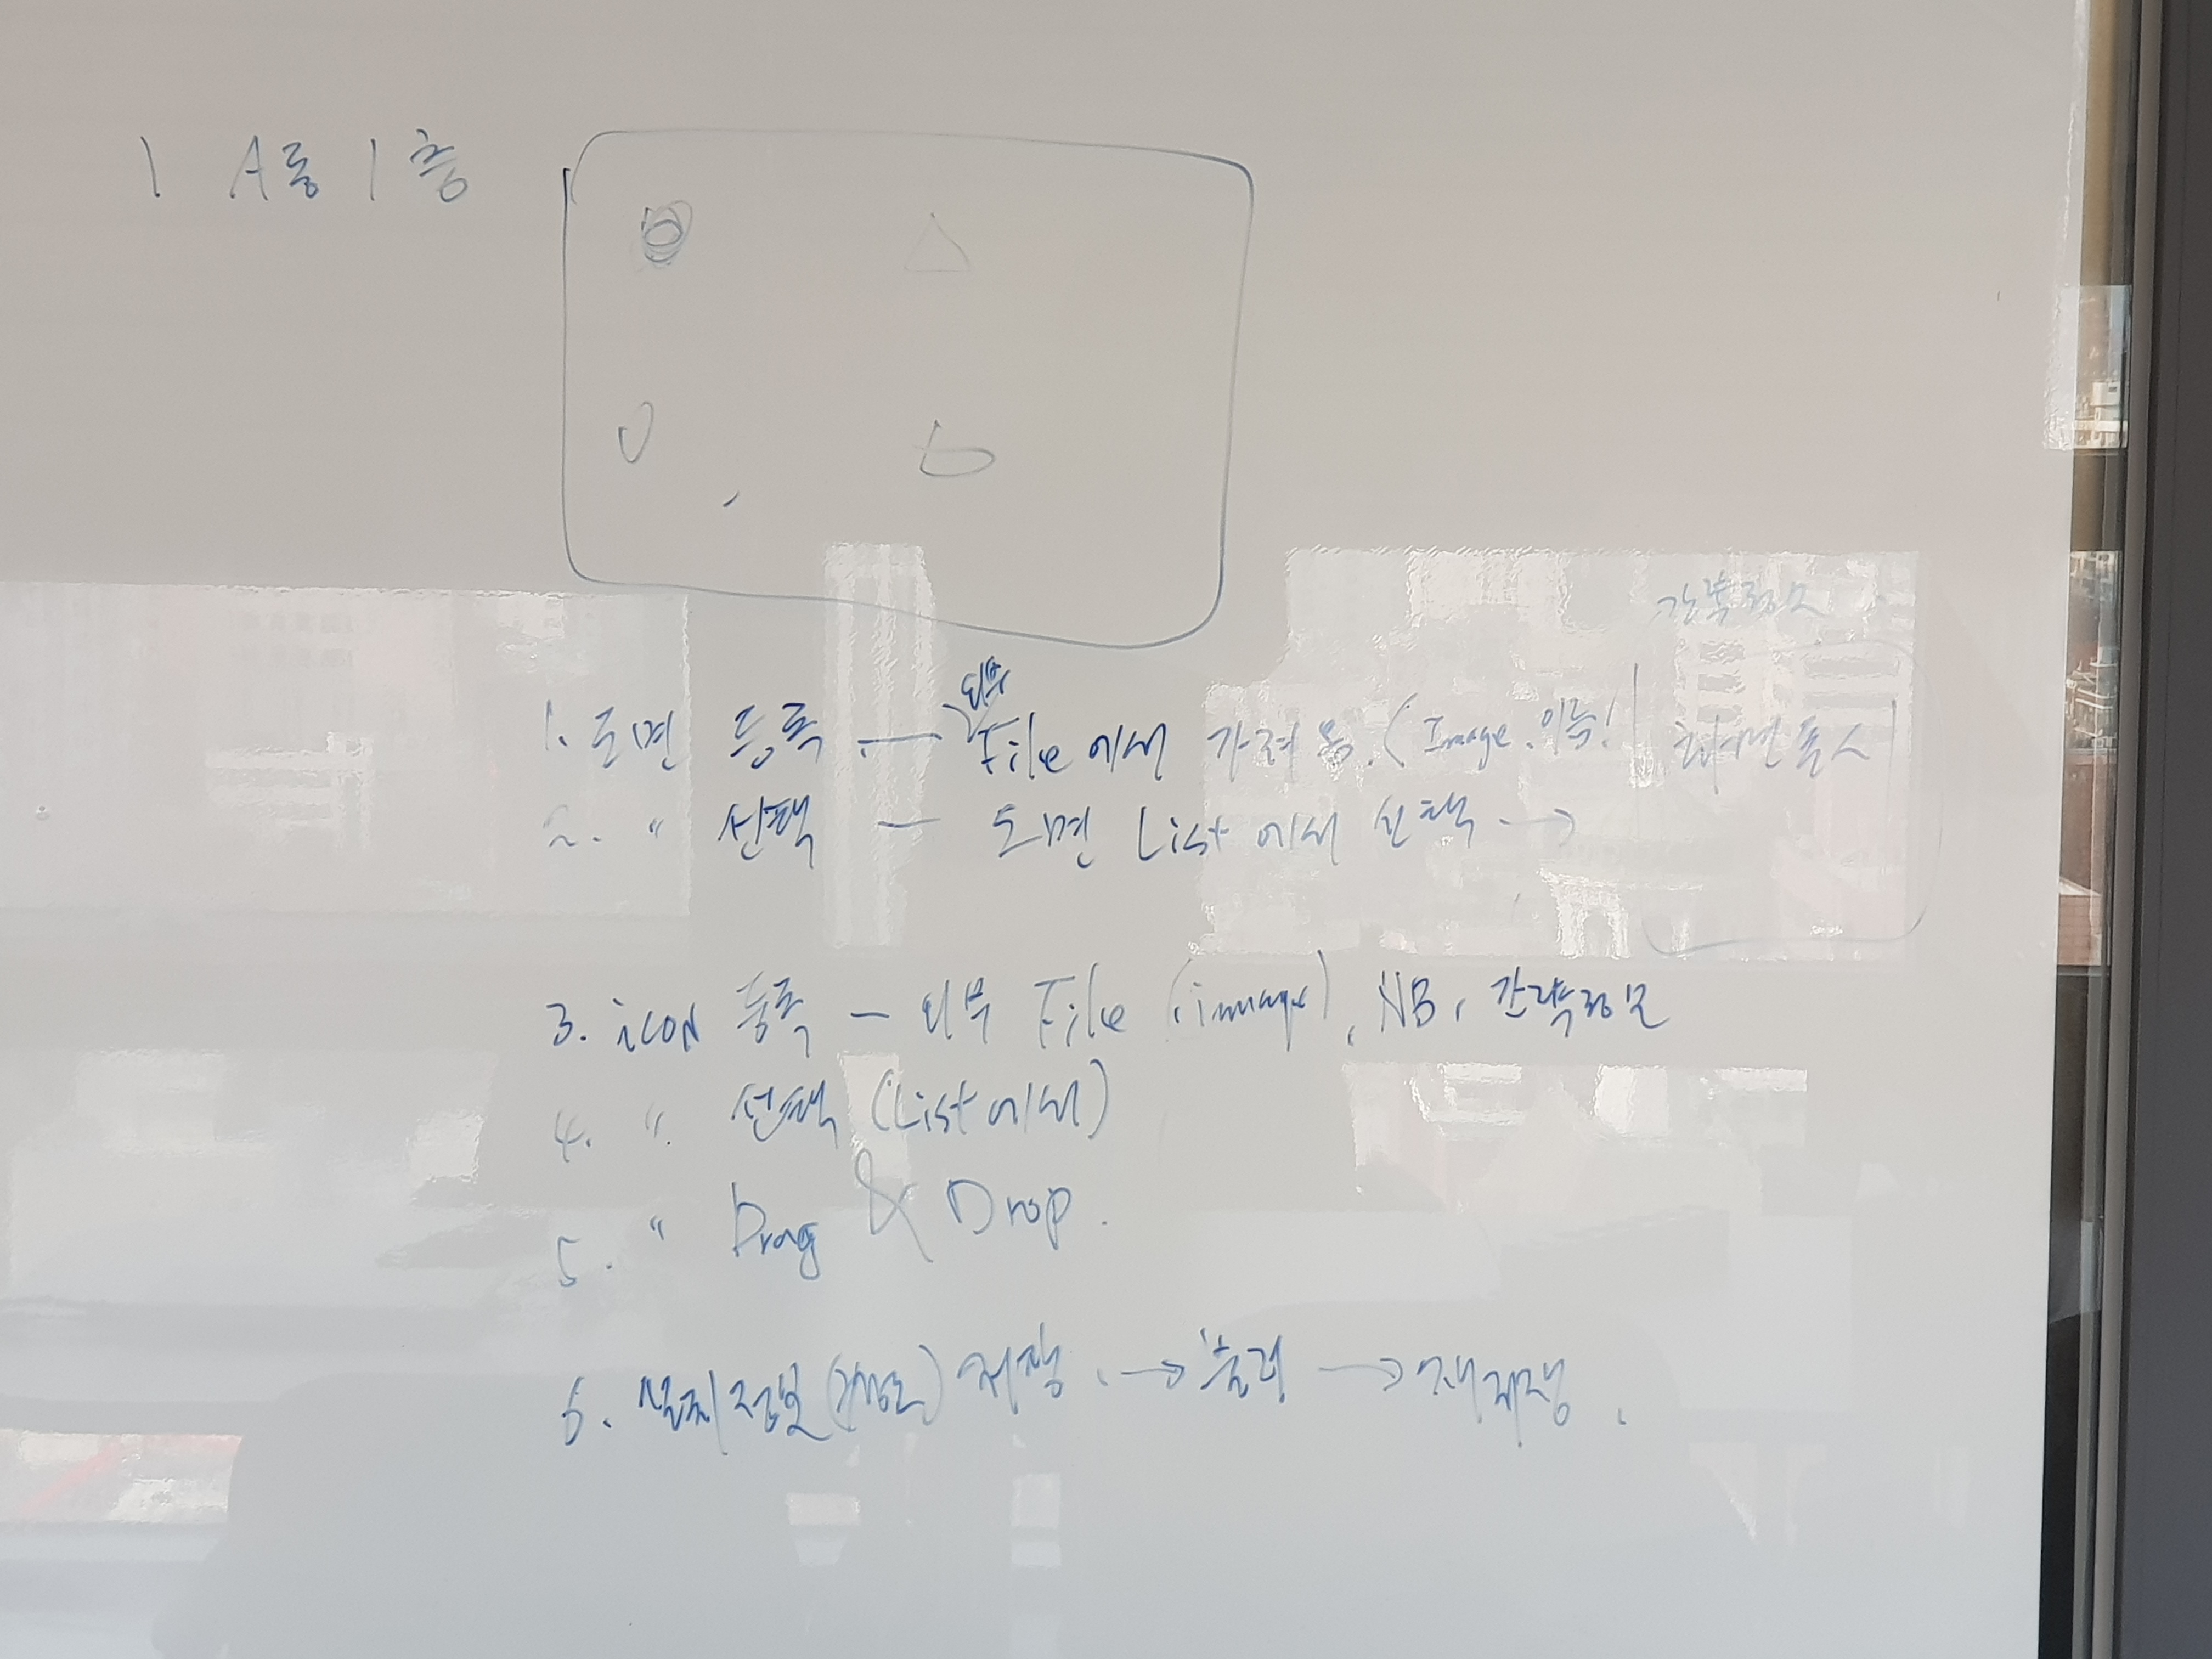 1 A동 1층
1. 도면 등록 — 외부 File에서 가져옴. (Image, 이름!)
화면표시
2. " 선택 — 도면 List에서 선택 →
3. icon 등록 — 외부 File (image), NB, 간략정보
4. " 선택 (List에서)
5. " Drag & Drop.
6. 설치정보 저장. → 출력 → 재저장.